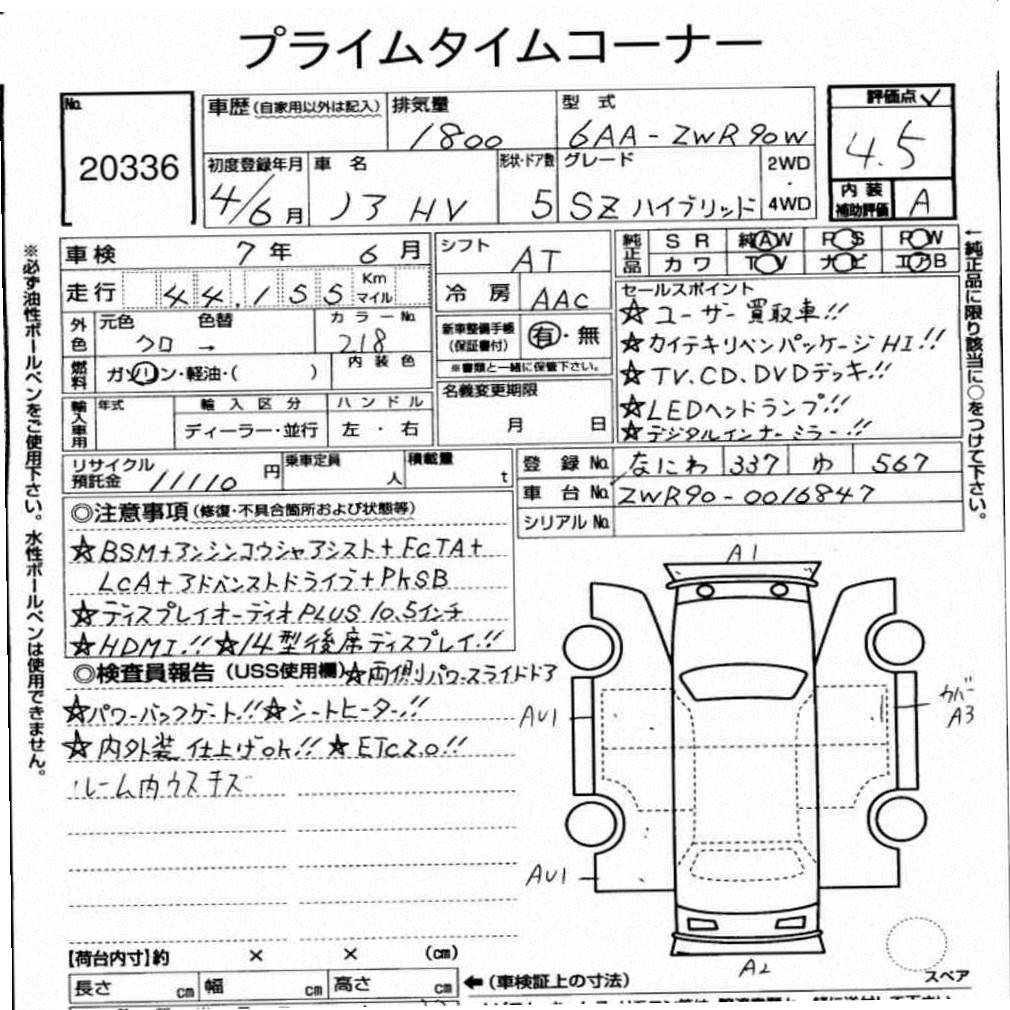 プライムタイムコーナー
No. 20336
車歴(自家用以外は記入) 排気量 1800 型式 6AA-ZWR90W
評価点✓ 4.5
初度登録年月 4/6月 車名 ノア HV 形状・ドア数 5 グレード SZ ハイブリッド 2WD・4WD
内装補助評価 A
車検 7年 6月 シフト AT 純正品 SR 純AW PS PW
カワ TV ナビ エアB
走行 44,155 Km マイル 冷房 AAC
外色 元色 クロ 色替 → カラーNo. 218
新車整備手帳(保証書付) 有・無
※書類と一緒に保管下さい。
燃料 ガソリン・軽油・( ) 内装色
名義変更期限 月 日
輸入車用 年式 輸入区分 ディーラー・並行 ハンドル 左・右
セールスポイント
☆ユーザー買取車!!
☆カイテキリベンパッケージHI!!
☆TV.CD.DVDデッキ!!
☆LEDヘッドランプ!!
☆デジタルインナーミラー!!
リサイクル預託金 11110円 乗車定員 人 積載量 t
登録No. なにわ 337 ゆ 567
車台No. ZWR90-0016847
シリアルNo.
◎注意事項(修復・不具合箇所および状態等)
☆BSM+アンシンコウシャアシスト+FCTA+
LCA+アドバンストドライブ+PKSB
☆ディスプレイオーディオPLUS 10.5インチ
☆HDMI!!☆14型後席ディスプレイ!!
◎検査員報告(USS使用欄)☆両側パワースライドドア
☆パワーバックゲート!!☆シートヒーター!!
☆内外装仕上げok!!☆ETC2.0!!
ルーム内ウスキズ
A1
AU1
カバー
A3
AU1
A2
スペア
【荷台内寸】約 × × (cm)
長さ cm 幅 cm 高さ cm ←(車検証上の寸法)
※必ず油性ボールペンをご使用下さい。水性ボールペンは使用できません。
←純正品に限り該当に○をつけて下さい。